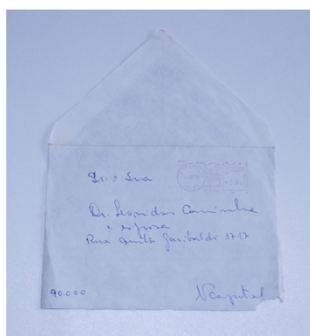 Sr. e Sra
Dr. Leonidas
e esposa
Rua Anita Garibaldi 1717
90.000
N Capital